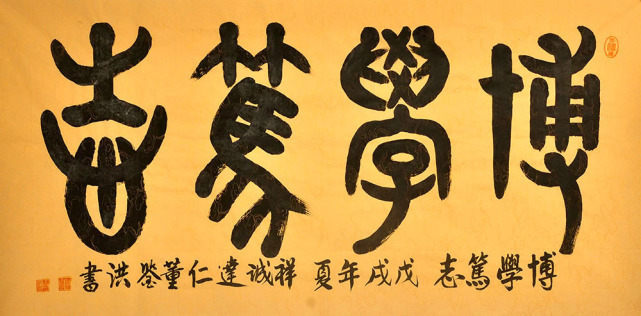 博學篤志
博學篤志 戊戌年夏 祥誠達仁董鎣洪書